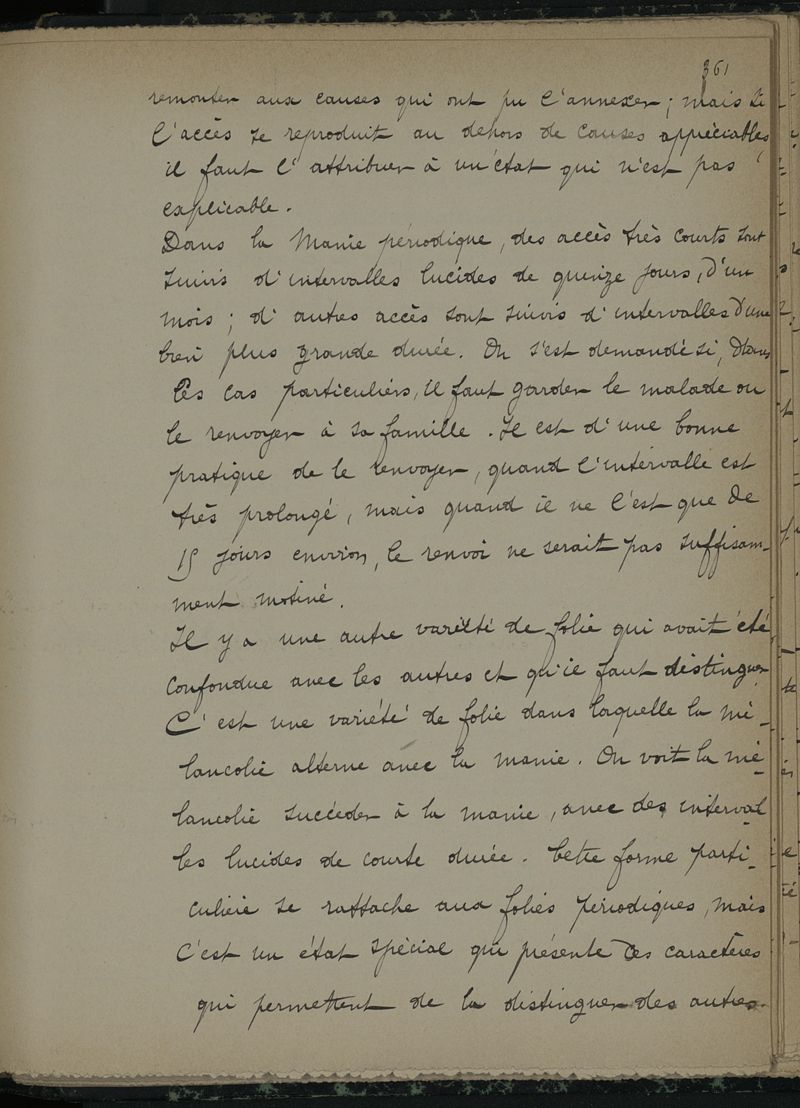 361
remonter aux causes qui ont pu l'annexer ; mais si
l'accès se reproduit au dehors de causes appréciables,
il faut l'attribuer à un état qui n'est pas
explicable.
Dans la Manie périodique, des accès très courts sont
suivis d'intervalles lucides de quinze jours, d'un
mois ; d'autres accès sont suivis d'intervalles d'une
bien plus grande durée. On s'est demandé si, dans
les cas particuliers, il faut garder le malade ou
le renvoyer à sa famille. Il est d'une bonne
pratique de le renvoyer, quand l'intervalle est
très prolongé, mais quand il ne l'est que de
15 jours environ, le renvoi ne serait pas suffisam-
ment motivé.
Il y a une autre variété de folie qui avait été
confondue avec les autres et qu'il faut distinguer
C'est une variété de folie dans laquelle la mé-
lancolie alterne avec la manie. On voit la mé-
lancolie succéder à la manie, avec des interval
les lucides de courte durée. Cette forme parti-
culière se rattache aux folies périodiques, mais
c'est un état spécial qui présente des caractères
qui permettent de la distinguer des autres.